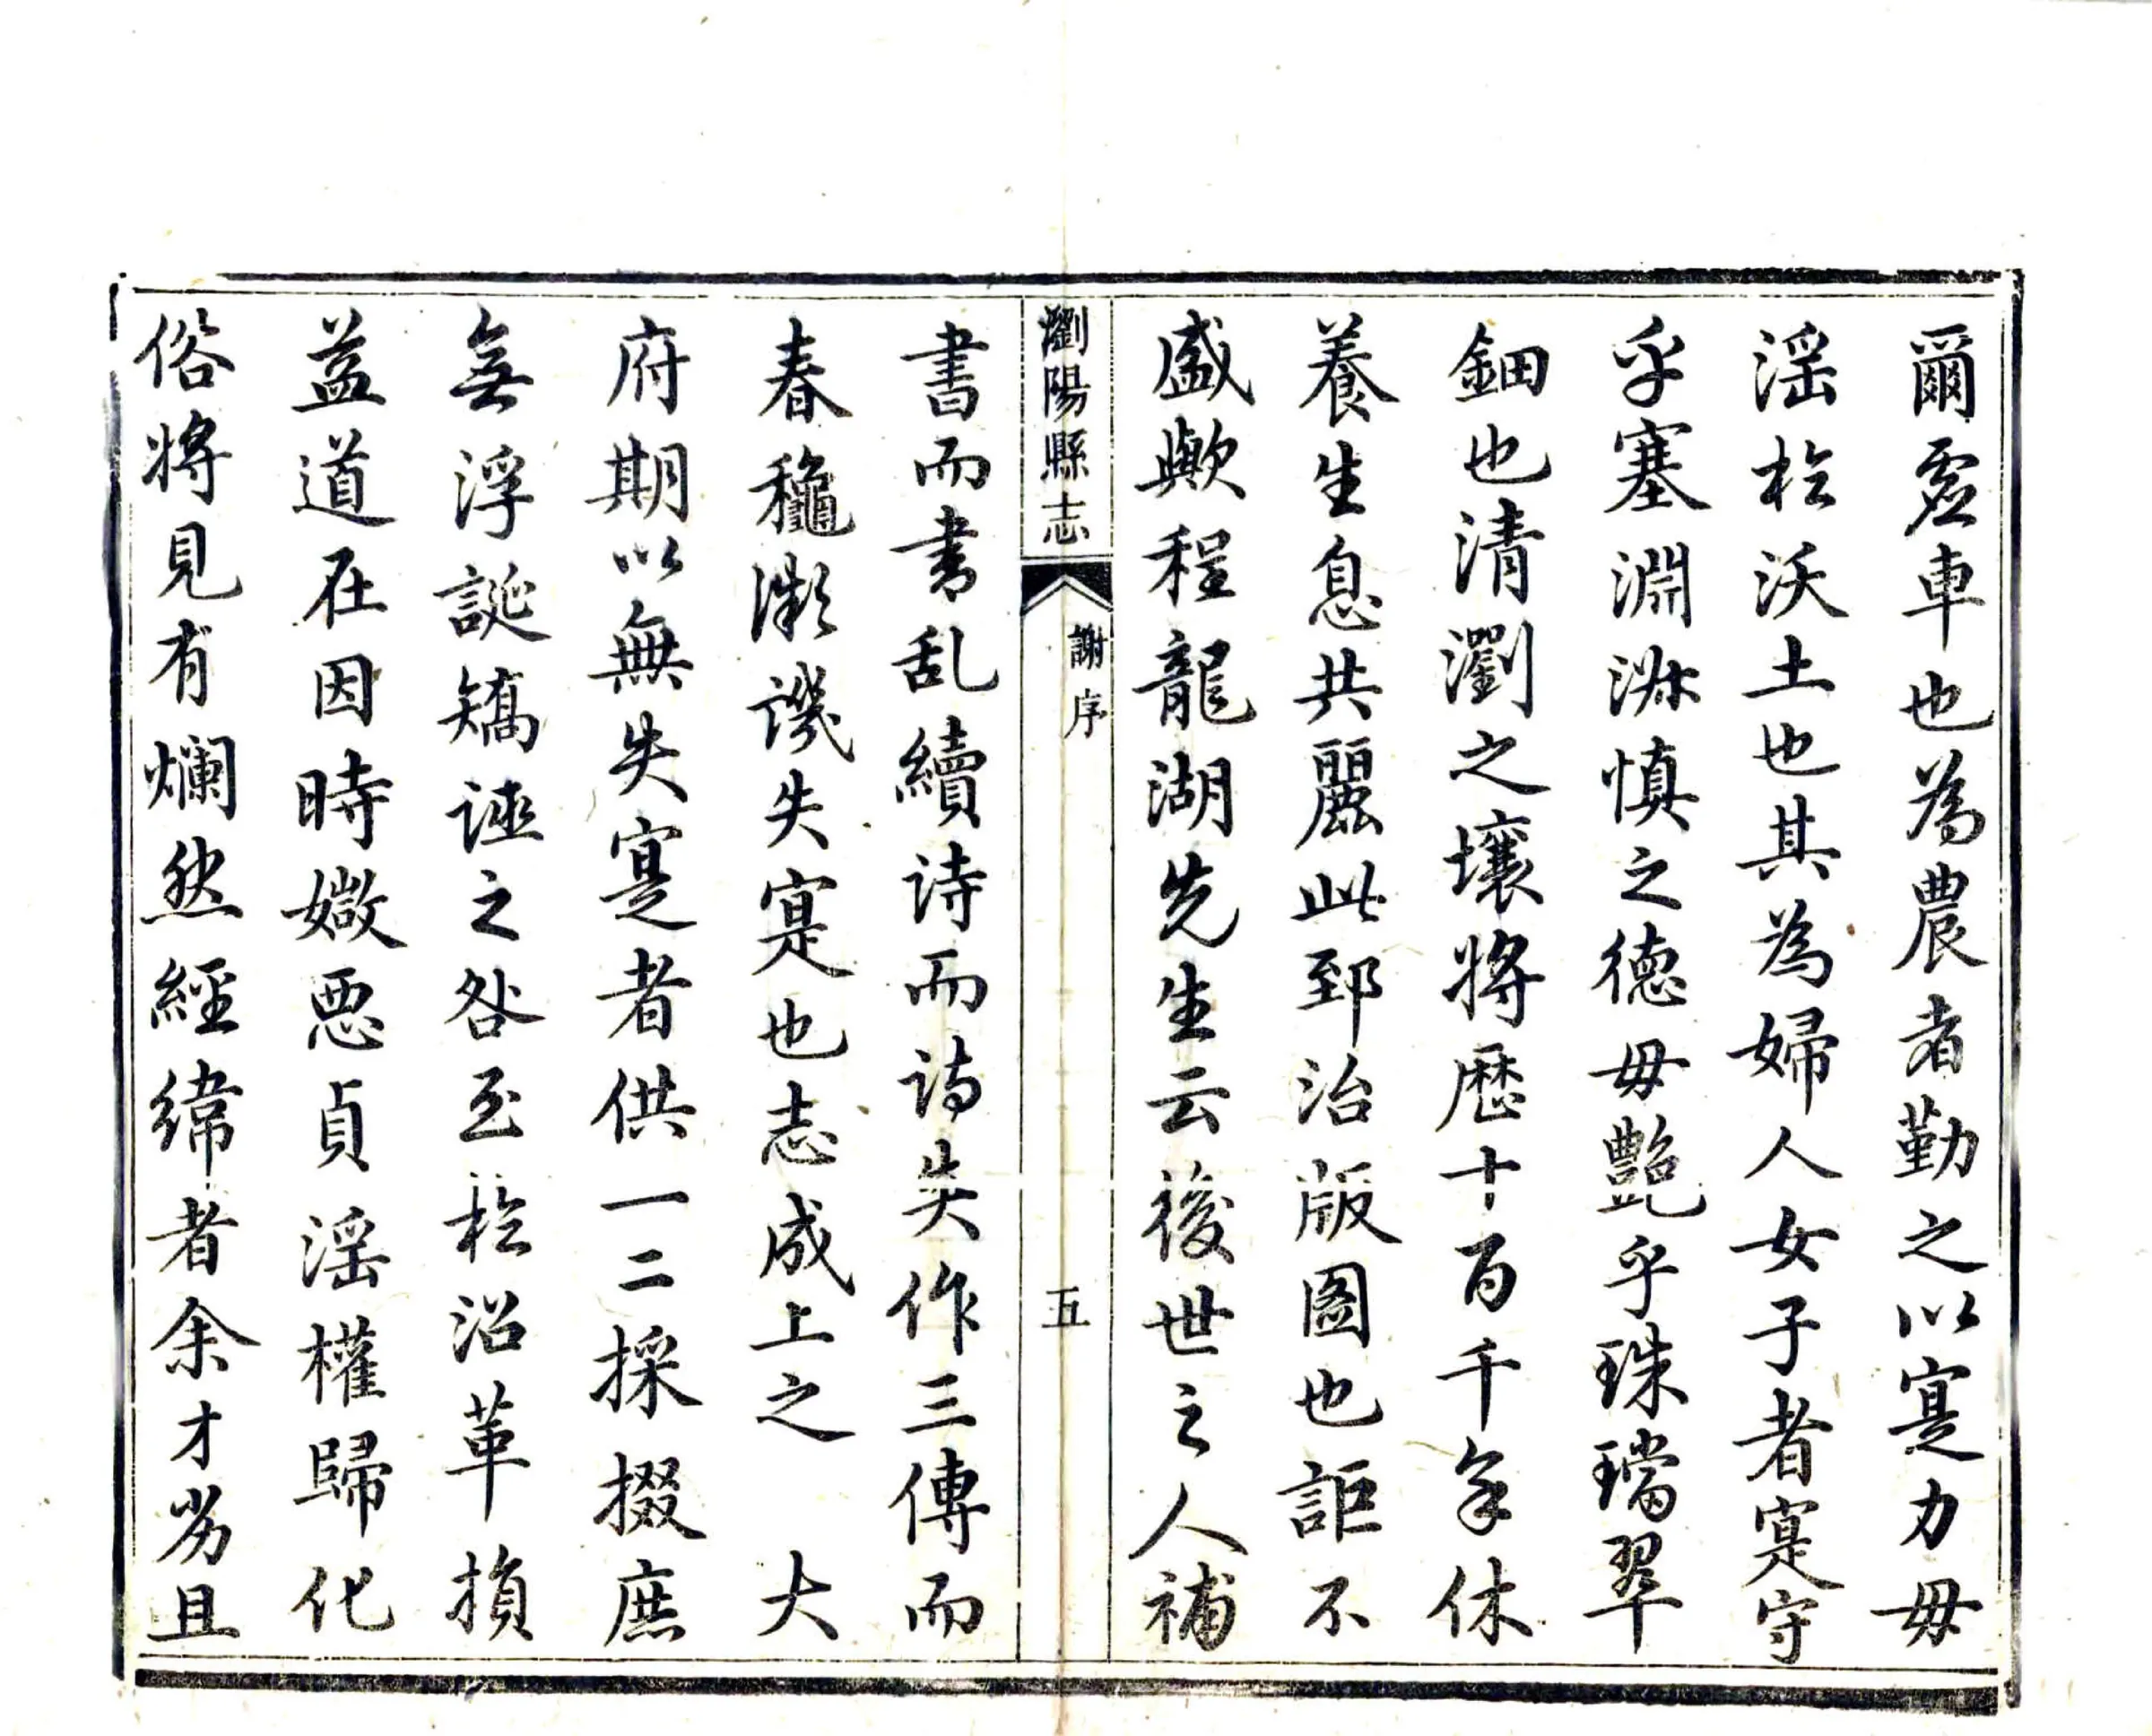 爾虛車也為農者勤之以寔力毋
滛於沃土也其為婦人女子者寔守
乎塞淵淑慎之德毋艷乎珠璫翠
鈿也清瀏之壤將歷十百千年休
養生息共麗此郅治版圖也詎不
盛歟程龍湖先生云後世之人補
瀏陽縣志
謝序
五
書而書亂續詩而詩失作三傳而
春穐漸譏失寔也志成上之　大
府期以無失寔者供一二採掇庶
無浮誕矯誣之咎至於沿革損
益道在因時媺惡貞滛權歸化
俗將見有爛然經緯者余才劣且